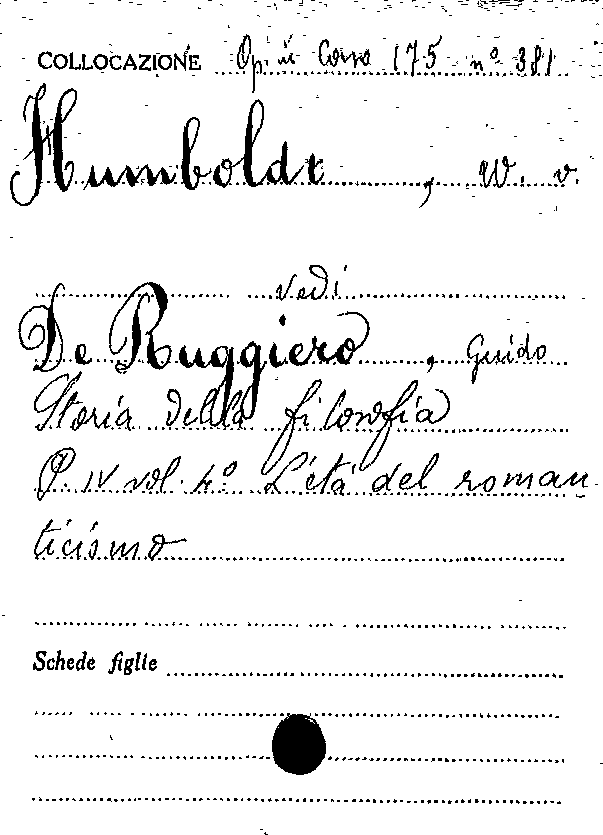 COLLOCAZIONE Op. in Corso 175 n° 381
Humboldt, W. v.
vedi
De Ruggiero, Guido
Storia della filosofia
P. IV vol. 4° L'età del roman-
ticismo
Schede figlie